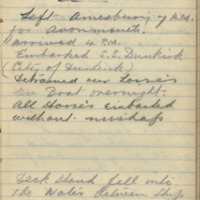 Left Amesbury 7 A.M.
for Avonmouth.
arrived 4 P.M.
Embarked S.S. Dunkirk
(City of Dunkirk)
Detrained our Horses
on Boat overnight.
All Horses embarked
without mishap
Deck Hand fell into
the Water between Ship